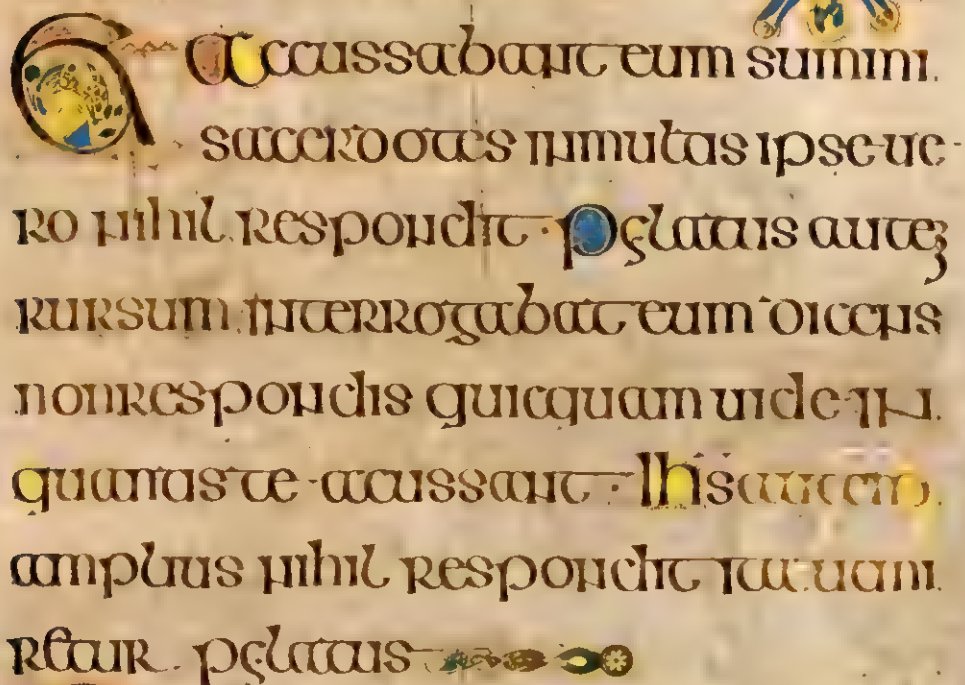 Et accussabant eum summi
sacerdotes in multis ipse ue
ro nihil respondit · pilatus autē
rursum interrogabat eum dicens
non respondis quicquam uide in
quantis te acussant · Ihs autem
amplius nihil respondit ita ut mi
retur pilatus